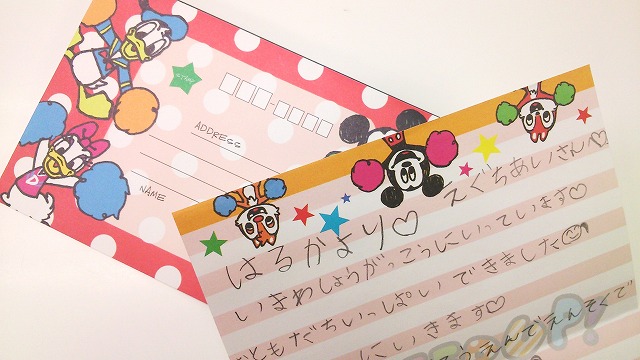 ADDRESS
NAME
はるかより♡ えぐちあいさんへ♡
いまわしょうがっこうにいっています♡
おともだちいっぱいできました
にいきます♡
えんでえんそくで